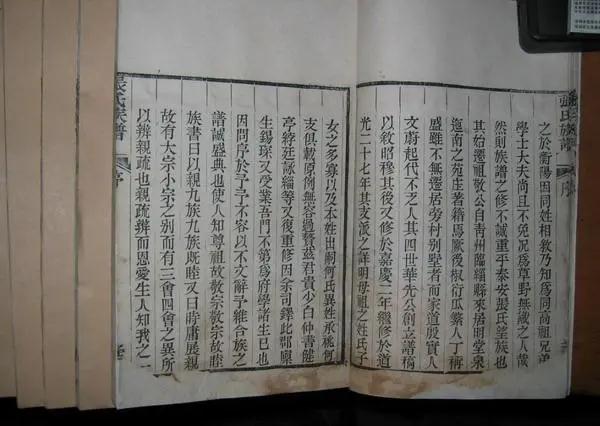 張氏族譜
序
之於衡陽因同姓相敘乃知為同高祖兄弟
學士大夫尚且不免況為草野無識之人哉
然則族譜之修不誠重乎泰安張氏望族也
其始遷祖敬公自青州臨緇縣來居明堂泉
迤南之苑庄著籍焉厥後椒衍瓜繁人丁稱
盛雖不無遷居旁村别墅者而家道殷實人
文蔚起代不乏人其四世華先公創立譜稿
以敘昭穆其後又修於嘉慶二年繼修於道
光二十七年其支派之詳明母祖之姓氏子
女之多寡以及本姓出嗣何氏異姓承祧何
支俱載原例無容過贅茲君貴少白仲書健
亭綍廷詠緇等又復重修因余司鐸此鄉
生錫琛又受業吾門不第為府學諸生已也
因問序於予予不容以不文辭予維合族之
譜誠盛典也使人知尊祖故敬宗敬宗故睦
族書曰以親九族九族既睦又曰時庸展親
故有大宗小宗之别而有三會四會之異所
以辨親疏也親疏辨而恩愛生人知我之一
張氏族譜
序